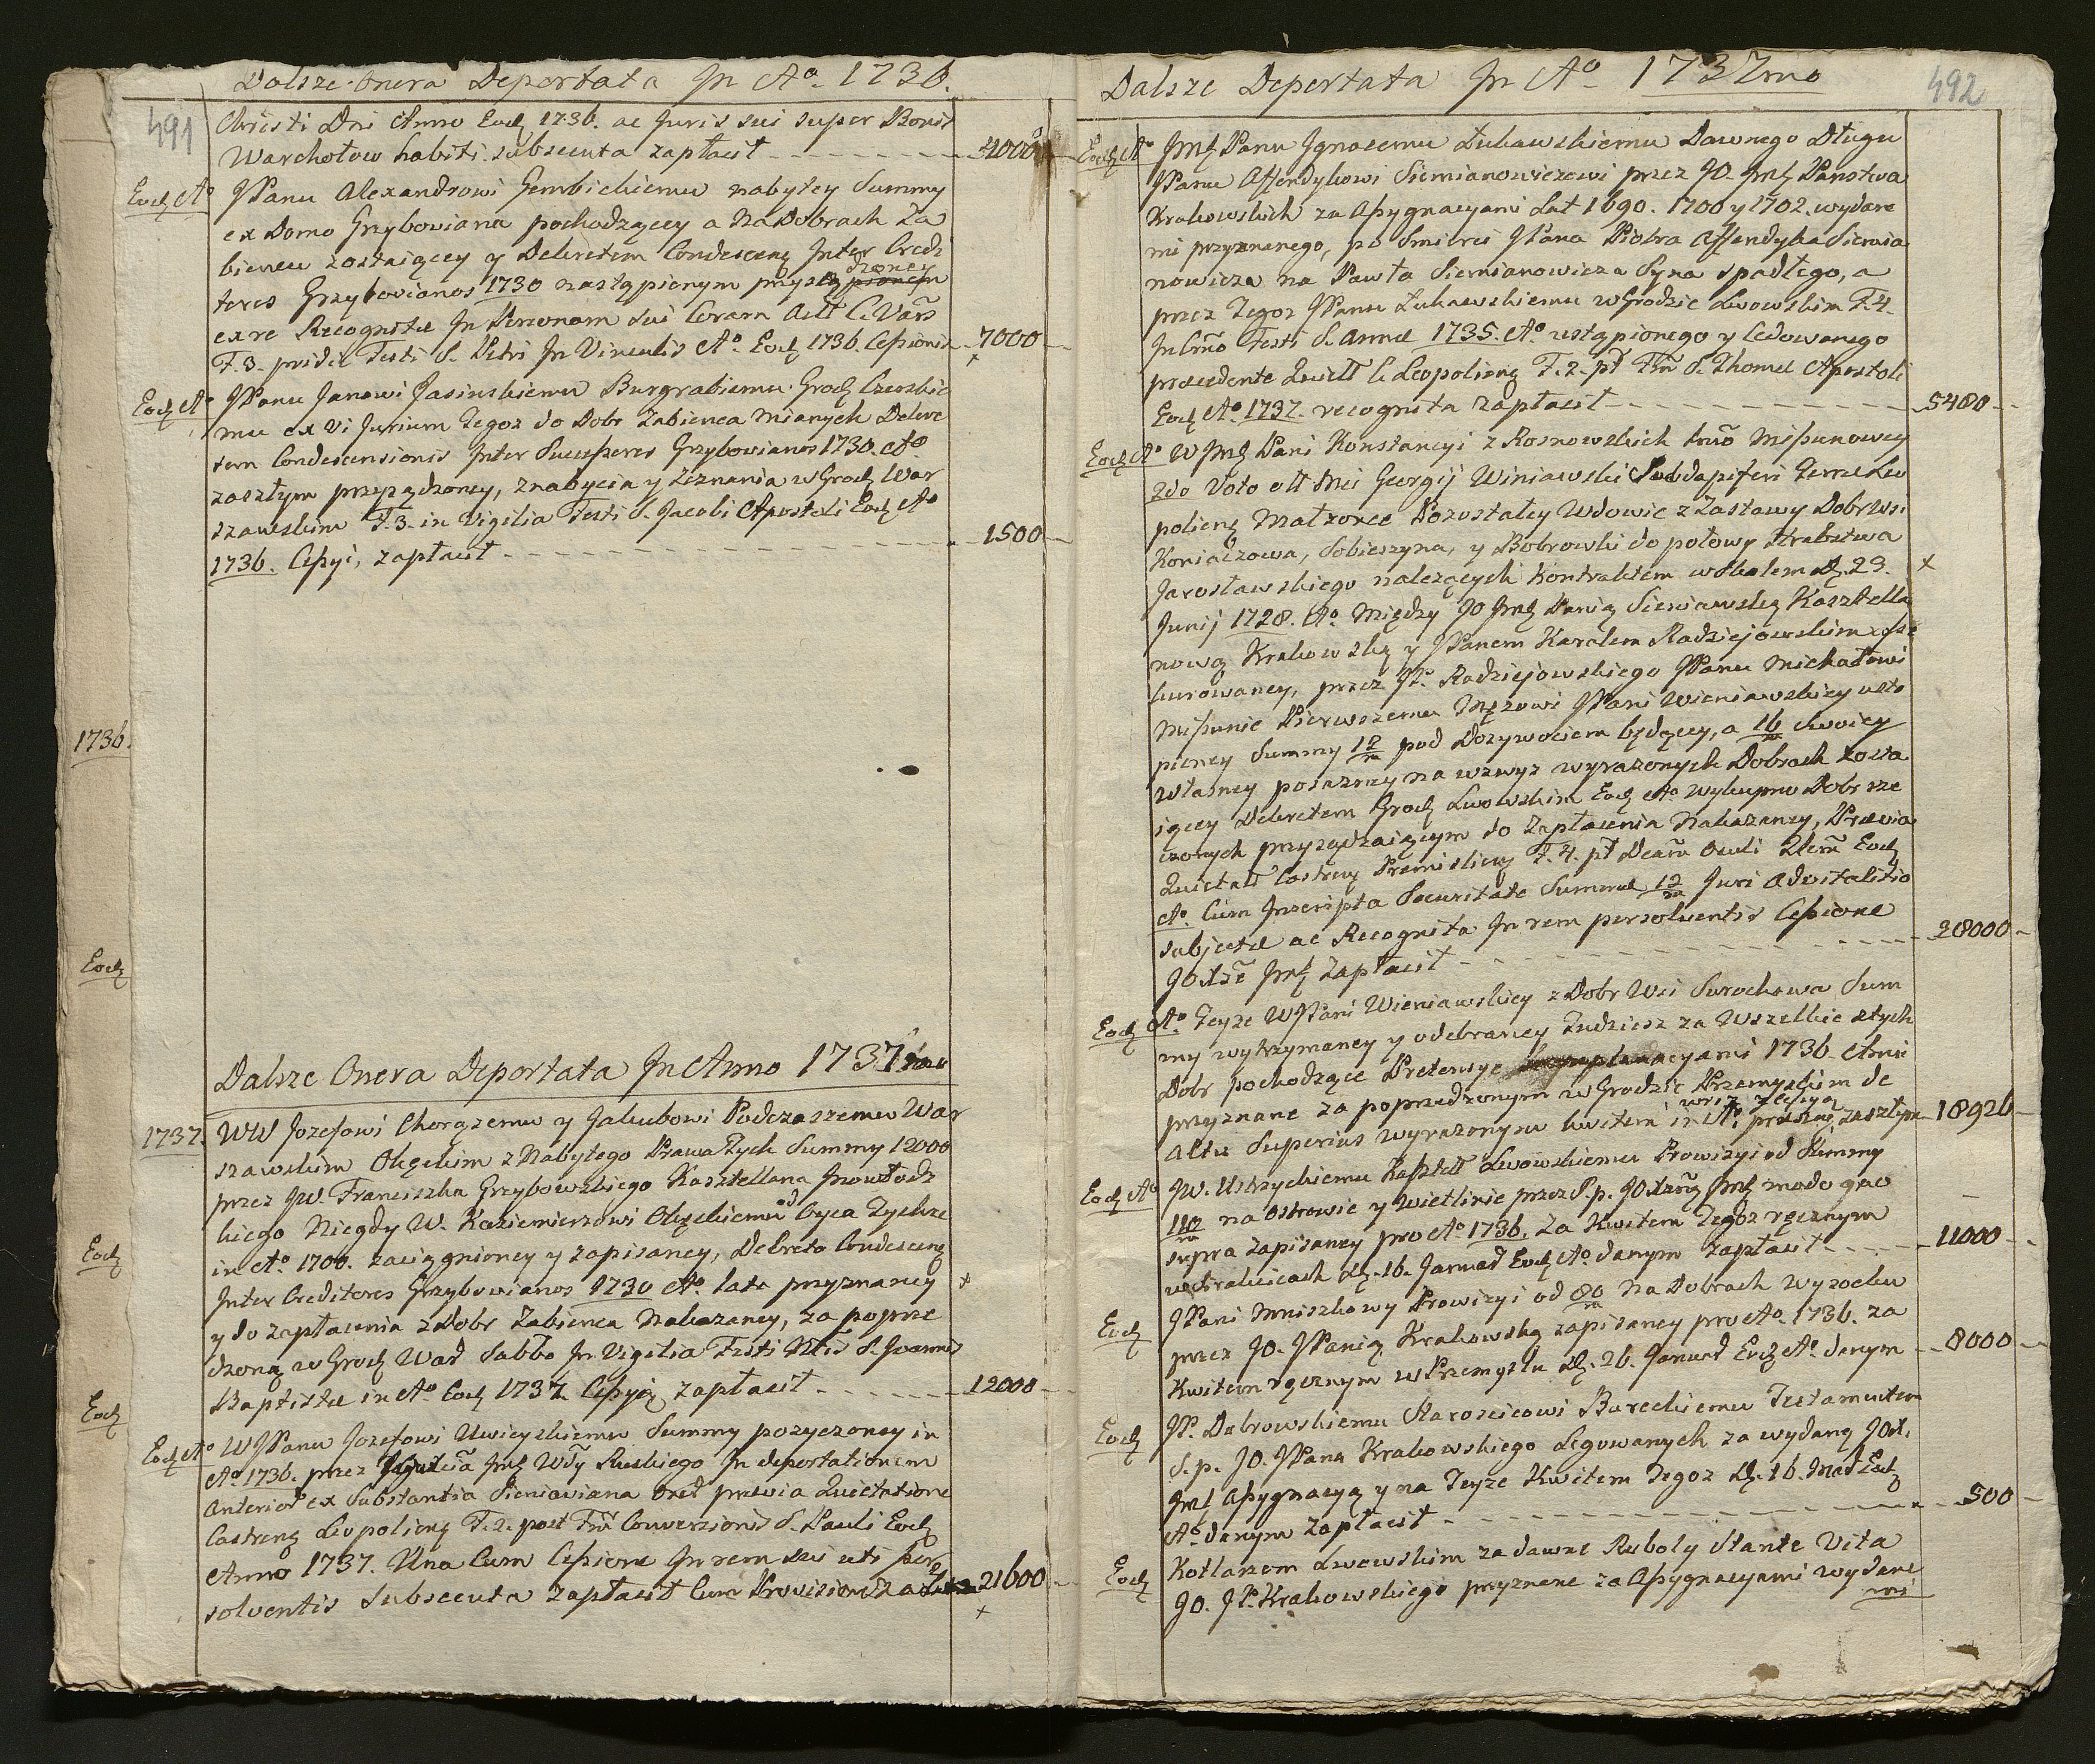 Dalsze Onera Deportata In Aº 1736.
491
Christi Dni Anno Eod 1736. ac Juris sui super Bonis
Warchołow habiti subsecuta zapłacił 4000
Eod Aº JPanu Alexandrowi Gembickiemu nabytey Summy
ex Domo Grzyboviana pochodzącey a na Dobrach Za
biencu zostaiącey y Dekretem Condescens Inter Credi
tores Grzybovianos 1730 nastąpionym przysądzoney
ex re Recognitae In Personam sui Coram Actis C. Vars
F. 3. pridie Festi S. Petri In Vinculis Aº Eod 1736. Cessionis 7000
Eod Aº JPanu Janowi Jasinskiemu Burgrabiemu Grod Czerskie
mu ex vi Jurium Tegoz do Dobr Zabienca Mianych Dekre
tem Condescensionis Inter Successores Grzybovianos 1730. Aº
zaszłym przysądzoney, znabycia y Zeznania w Grod War
szawskim F. 3. in Vigilia Festi S. Jacobi Apostoli Eod Aº
1736. Cessyi, zapłacił 1500
1736.
Eod
Eod
Eod
Dalsze Onera Deportata In Anno 1737mo
1737. WW Jozefowi Chorązemu y Jakubowi Podczaszemu War
szawskim Olęckim z Nabytego Prawa Tych Summy 12000
przez JW. Franciszka Grzybowskiego Kasztellana Inowłodz
kiego Niegdy W. Kazimierzowi Olęckiemu Oyca Tychze
in Aº 1700. zaciągnioney y zapisaney, Dekreto Condescens
Inter Creditores Grzybovianos 1730 Aº lata przyznaney
y do zapłacenia z Dobr Zabienca Nakazaney, za poprze
dzoną w Grod War Sabbo In Vigilia Festi Ntis S. Joannis
Baptistae in Aº Eod 1737. Cessyią zapłacił 12000
Eod Aº WJPanu Jozefowi Uwieyskiemu Summy pozyczoney in
Aº 1736. przez Imć Wdy Ruskiego In deportationem
Anterior ex Substantia Sieniaviana Oner praevia Quietatione
Castrens Leopoliens F. 2. post Fm Conversionis S. Pauli Eod
Anno 1737. Una Cum Cessione In rem sui uti per
solventis Subsecuta zapłacił Cum Provisione za 21600
Dalsze Deportata In Aº 1737mo
492
Eod Aº Imć Panu Ignacemu Łukawskiemu Dawnego Długu
JPanu Affendykowi Siemianowiczowi przez JO. Imć Panstwa
Krakowskich za Assygnacyami Lat 1690. 1700 y 1702. wydane
mi przyznanego, po Smierci JPana Piotra Affendyka Siemia
nowicza na Pawła Siemianowicza Syna spadłego, a
przez Tegoz JPanu Łukawskiemu w Grodzie Lwowskim F. 4.
In Cmo Festi S. Annae 1735. Aº ustąpionego y Cedowanego
praecedente Quiett C. Leopoliens F. 2. pt Fm S. Thomae Apostoli
Eod Aº 1737. recognita zapłacił 5400
Eod Aº W Imć Pani Konstancyi z Rosnowskich 1mo Missunowey
2do Voto Mci Georgij Winiawski Subdapiferi Terrae Leo
poliens Małzonce Pozostałey Wdowie z Zastawy Dobr Wsi
Koniaczowa, Sobieszyna, y Bobrowki do połowy Hrabstwa
Jarosławskiego nalezących Kontraktem w Skolem D. 23.
Junij 1728. Aº Między JO Imć Panią Sieniawską Kasztella
nową Krakowską y JPanem Karolem Radziejowskim obs
kurowaney, przez JP. Radziejowskiego JPanu Michałowi
Missunie Pierwszemu Męzowi JPani Wieniawskiey ustą
pioney Summy 12/m pod Dozywociem będącey, a 16/m Swoiey
własney posazney na wzwyz wyrazonych Dobrach zosta
iącey Dekretem Grod Lwowskim Eod Aº Wykupno Dobr rze
czonych przysądzaiącym do Zapłacenia Nakazaney, Praevia
Quietatt Castrens Premisliens F. 4. pt Dcam Oculi Qlem Eod
Aº Cum Inscripta Securitate Summae 12/m Juri Advitalitio
subjectae ac Recognita In rem persolventis Cessione
JOxże Imć Zapłacił 28000
Eod Aº Teyze WJPani Wieniawskiey z Dobr Wsi Surochowa Sum
my wytrzymaney y odebraney Tudziesz za Wszelkie z tych
Dobr pochodzące Pretensye 1736. Anni
przyznane za poprzedzonym w Grodzie Przemyskim de
Actu Superius wyrazonym kwitem wraz z Cessyą in Aº praesens zaszłym 18926
Eod Aº JW. Ustrzyckiemu Kasztell Lwowskiemu Prowizyi od Summy
110/m na Ostrowie y Wietlinie przez S. p. JOxżną Imć modo quo
supra zapisaney pro Aº 1736. Za Kwitem Tegoz ręcznym
D. 16. Januar Eod Aº danym zapłacił 11000
Eod JPani Mniszkowy Prowizyi od 80/m na Dobrach Wysocku
przez JO. JPanią Krakowską zapisaney pro Aº 1736. za
Kwitem ręcznym w Przemyslu D. 26. Januar Eod Aº danym 8000
Eod JP. Dabrowskiemu Staroscicowi Bareckiemu Testamentem
S. p. JO. JPana Krakowskiego Legowanych za wydaną JOx.
Imć Assygnacyą y na Teyze Kwitem Tegoz D. 16. Mar Eod
Aº danym zapłacił 500
Eod Kotlarzom Lwowskim za dawne Roboty Stante Vita
JO. JP. Krakowskiego przyznane za Assygnacyami wydane
mi